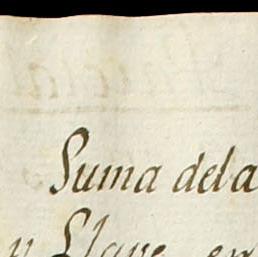 Suma dela
y Llave en